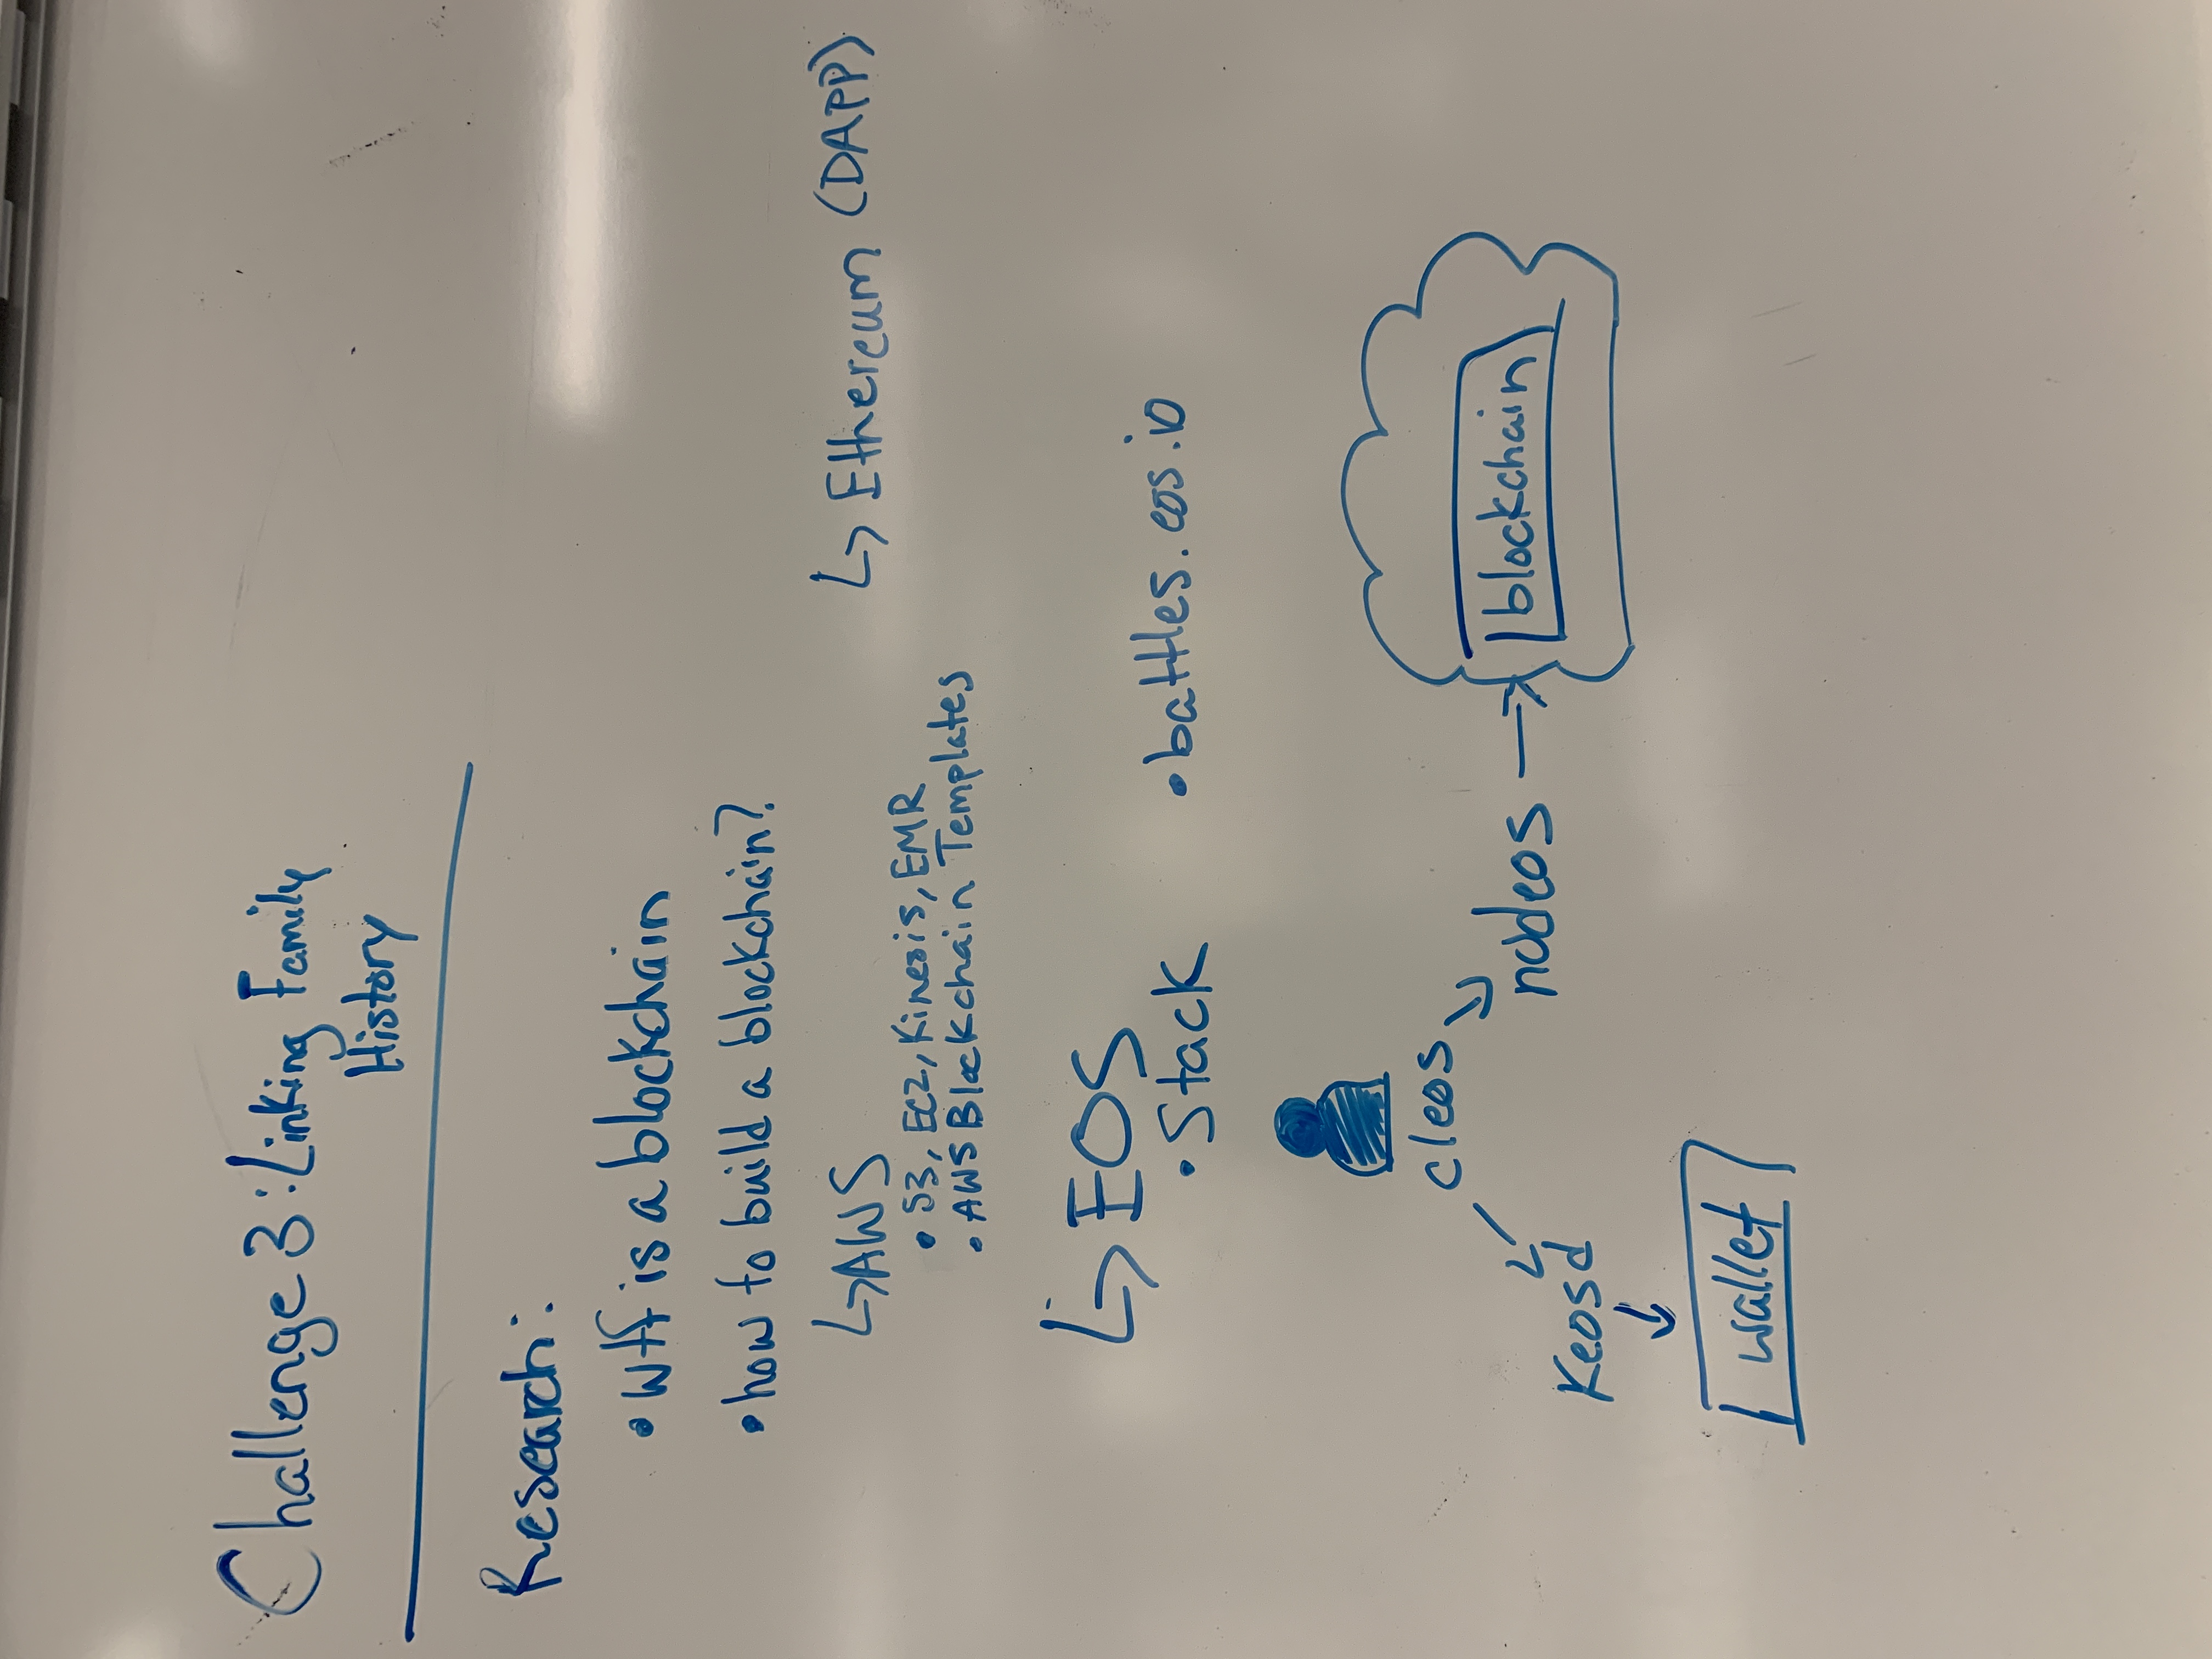 Challenge 3: Linking Family
History
Research:
• wtf is a blockchain
• how to build a blockchain?
↳ AWS
• S3, EC2, Kinesis, EMR
• AWS Blockchain Templates
↳ Ethereum (DAPP)
↳ EOS
• Stack
• battles.eos.io
cleos
nodeos → blockchain
Keosd
wallet